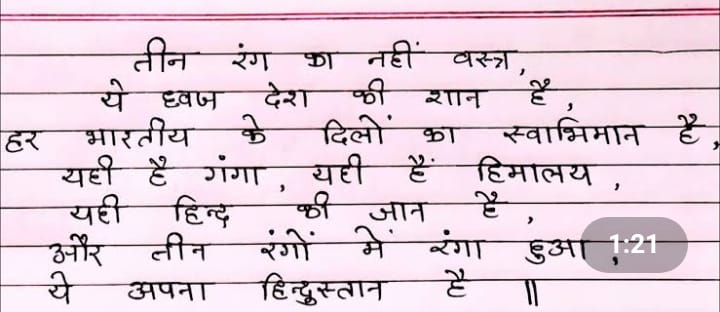 तीन रंग का नहीं वस्त्र,
ये ध्वज देश की शान है,
हर भारतीय के दिलों का स्वाभिमान है,
यही है गंगा, यही हैं हिमालय,
यही हिन्द की जान है,
और तीन रंगों में रंगा हुआ,
ये अपना हिन्दुस्तान है ॥
1:21